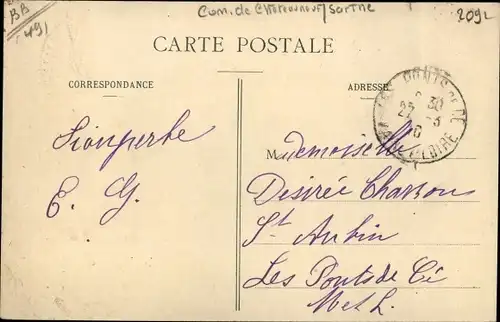 BB
491
Com. de Chateauneuf/sarthe
2092
CARTE POSTALE
CORRESPONDANCE
ADRESSE
PONTS DE CE
8 30
27 -3
LOIRE
Mademoiselle
Desirée
E. G.
St Aubin
Les Ponts de Cé
M et L.